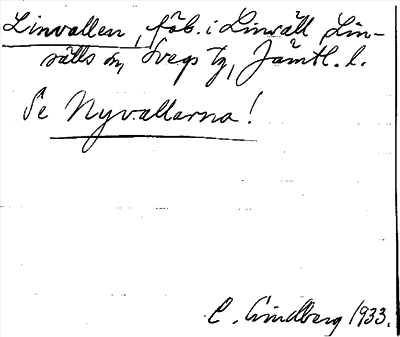 Linvallen, fäb. i Linsäll Lin-
sälls sn, Svegs tg, Jämtl. l.
Se Nyvallarna!
C. Lindberg 1933.